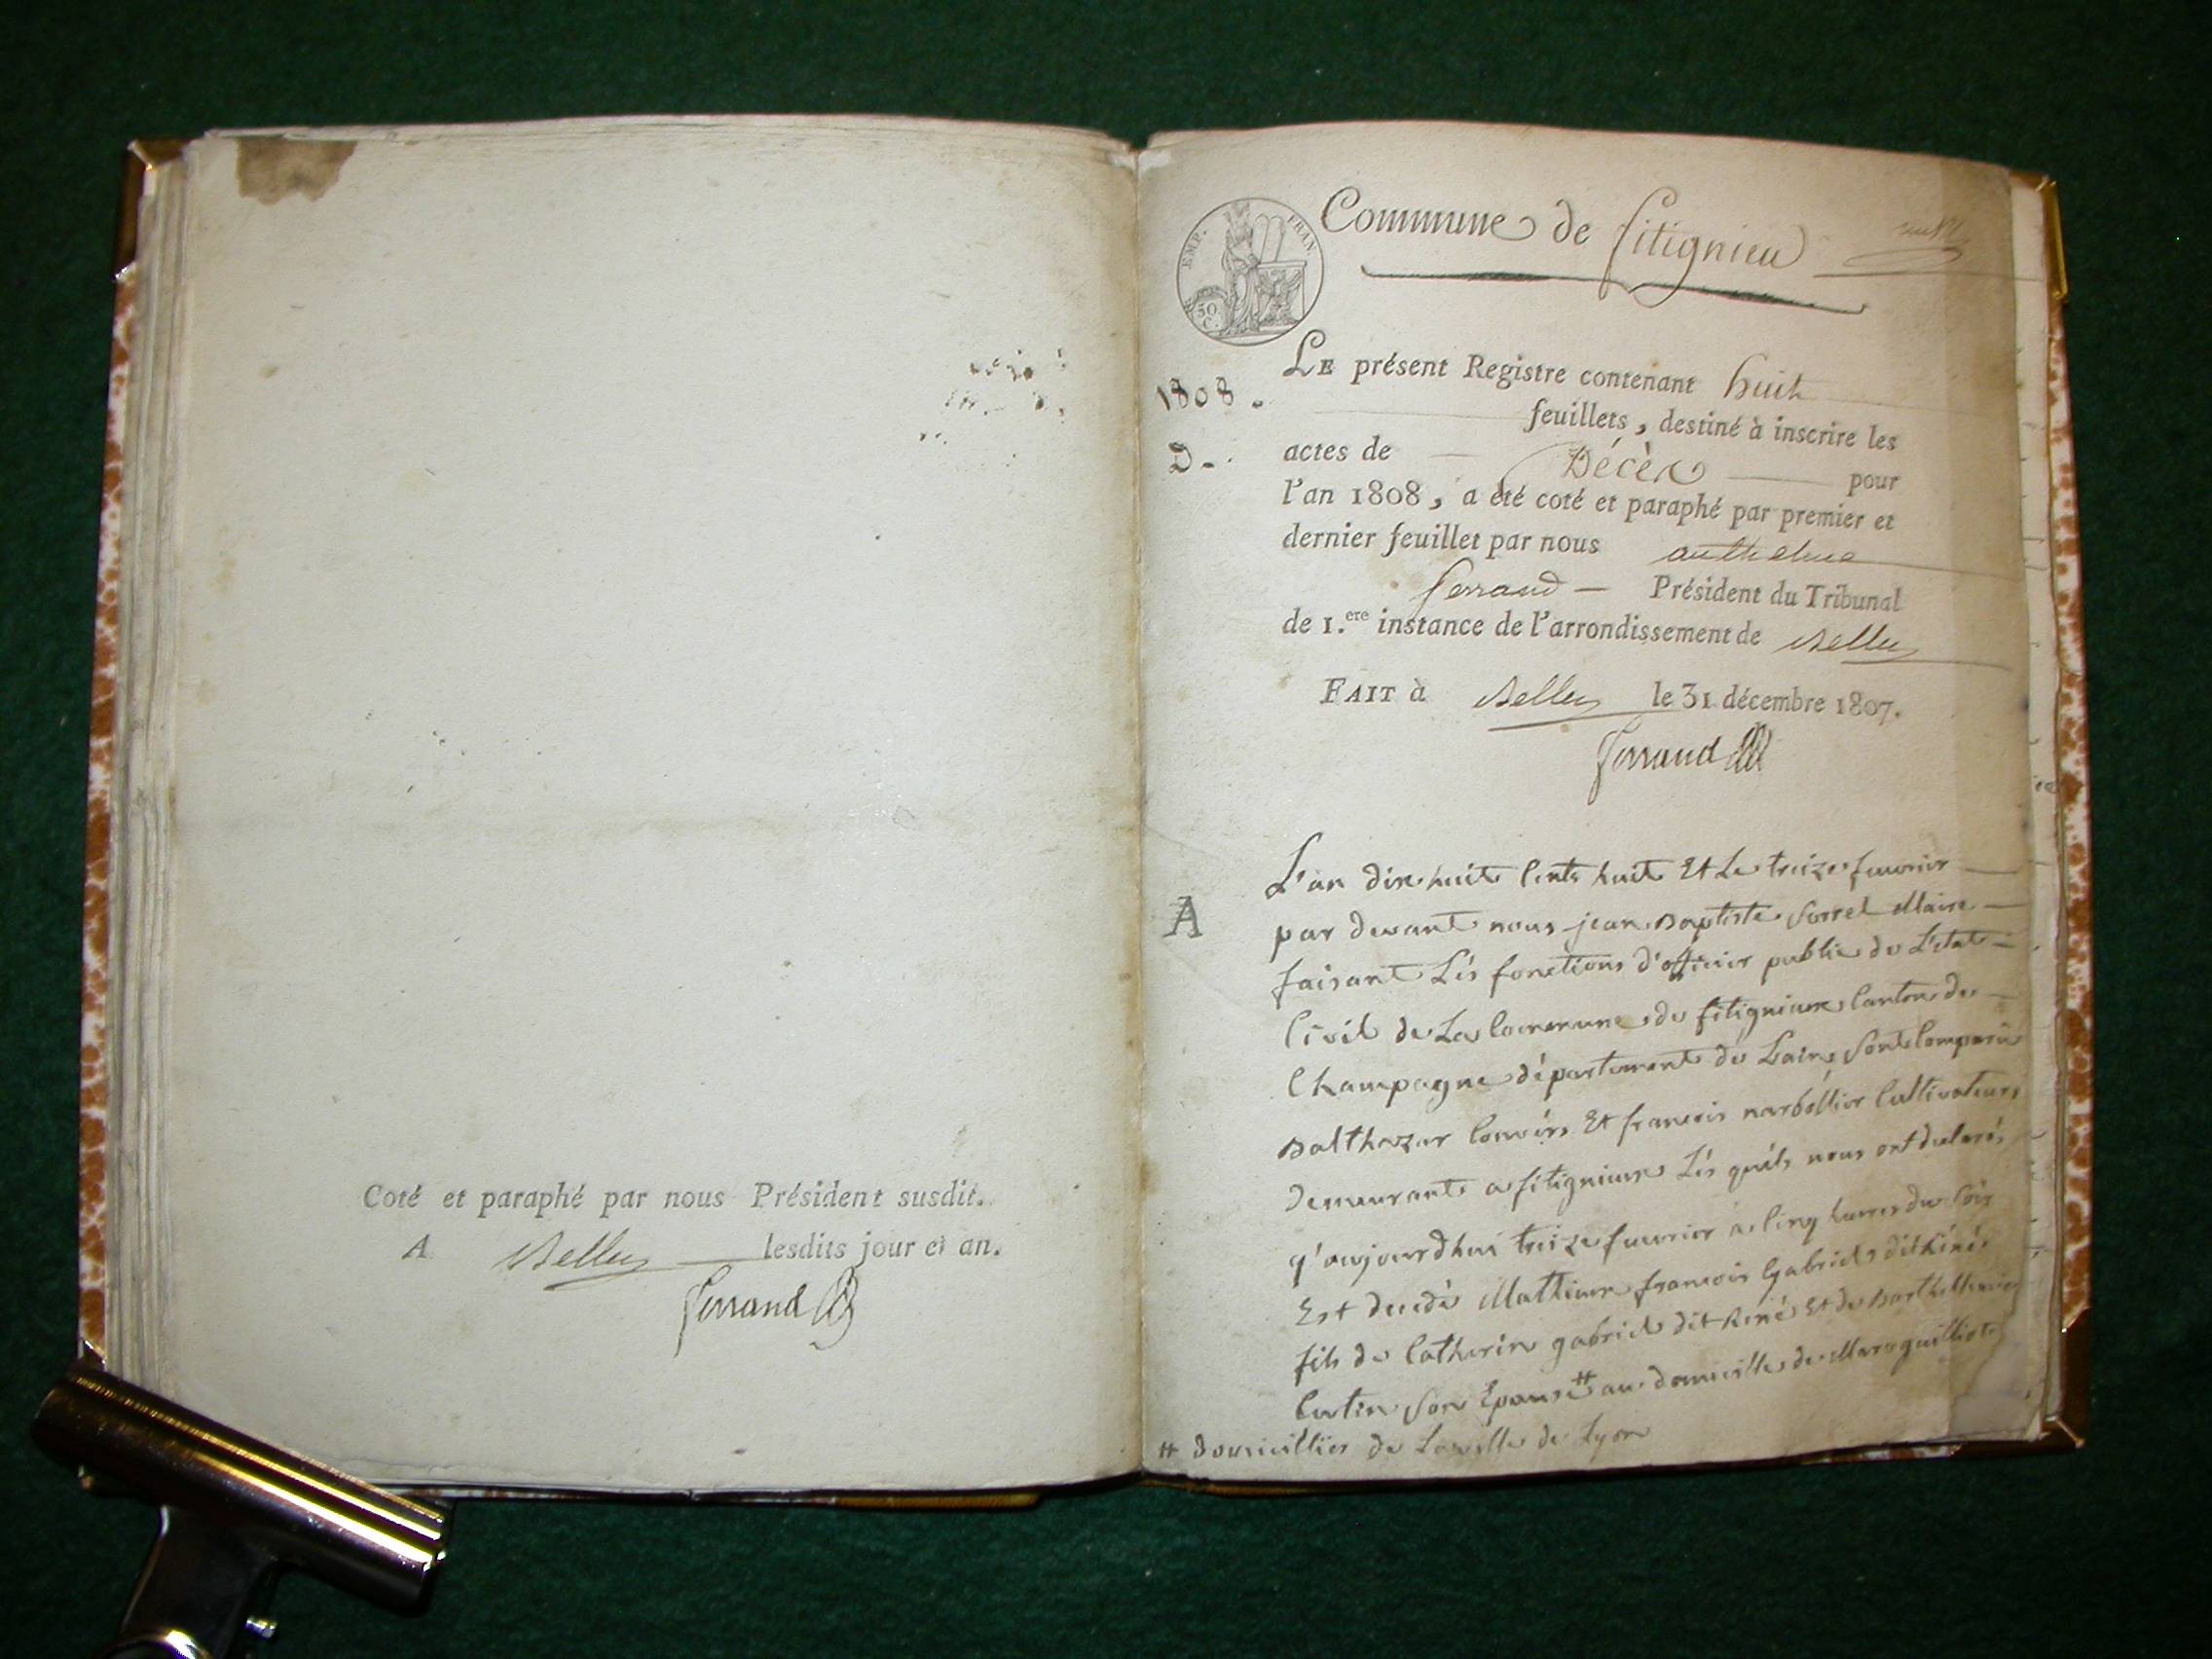 Coté et paraphé par nous Président susdit.
A Belley lesdits jour et an.
Ferrand
Commune de fitignieu
EMP. FRAN.
50 C.
1808.
D.
LE présent Registre contenant huit
feuillets, destiné à inscrire les
actes de Décès pour
l'an 1808, a été coté et paraphé par premier et
dernier feuillet par nous anthelme
ferrand Président du Tribunal
de 1.ere instance de l'arrondissement de Belley
FAIT à Belley le 31 décembre 1807.
Ferrand
A
L'an dix huit Cents huit Et Le treize fuvrier
par devant nous jean Baptiste Maire
faisant Lés fonctions d'officier public de L'etat
Civil de La Commune de fitignieux Canton de
Champagne département de Lain, Sont Comparu
Balthazar Et francois Cultivateurs
demeurants a fitignieux Lés quéls nous ont declaré,
q'aujourdhui treize fuvrier a Cinq heures du Soir
Est decédé Mathieux francois Gabriel dit Réné
fils de Catherin gabriel dit Réné Et de Barthellemie
son Epouse # au domicille de
# domicilliés de La ville de Lyon